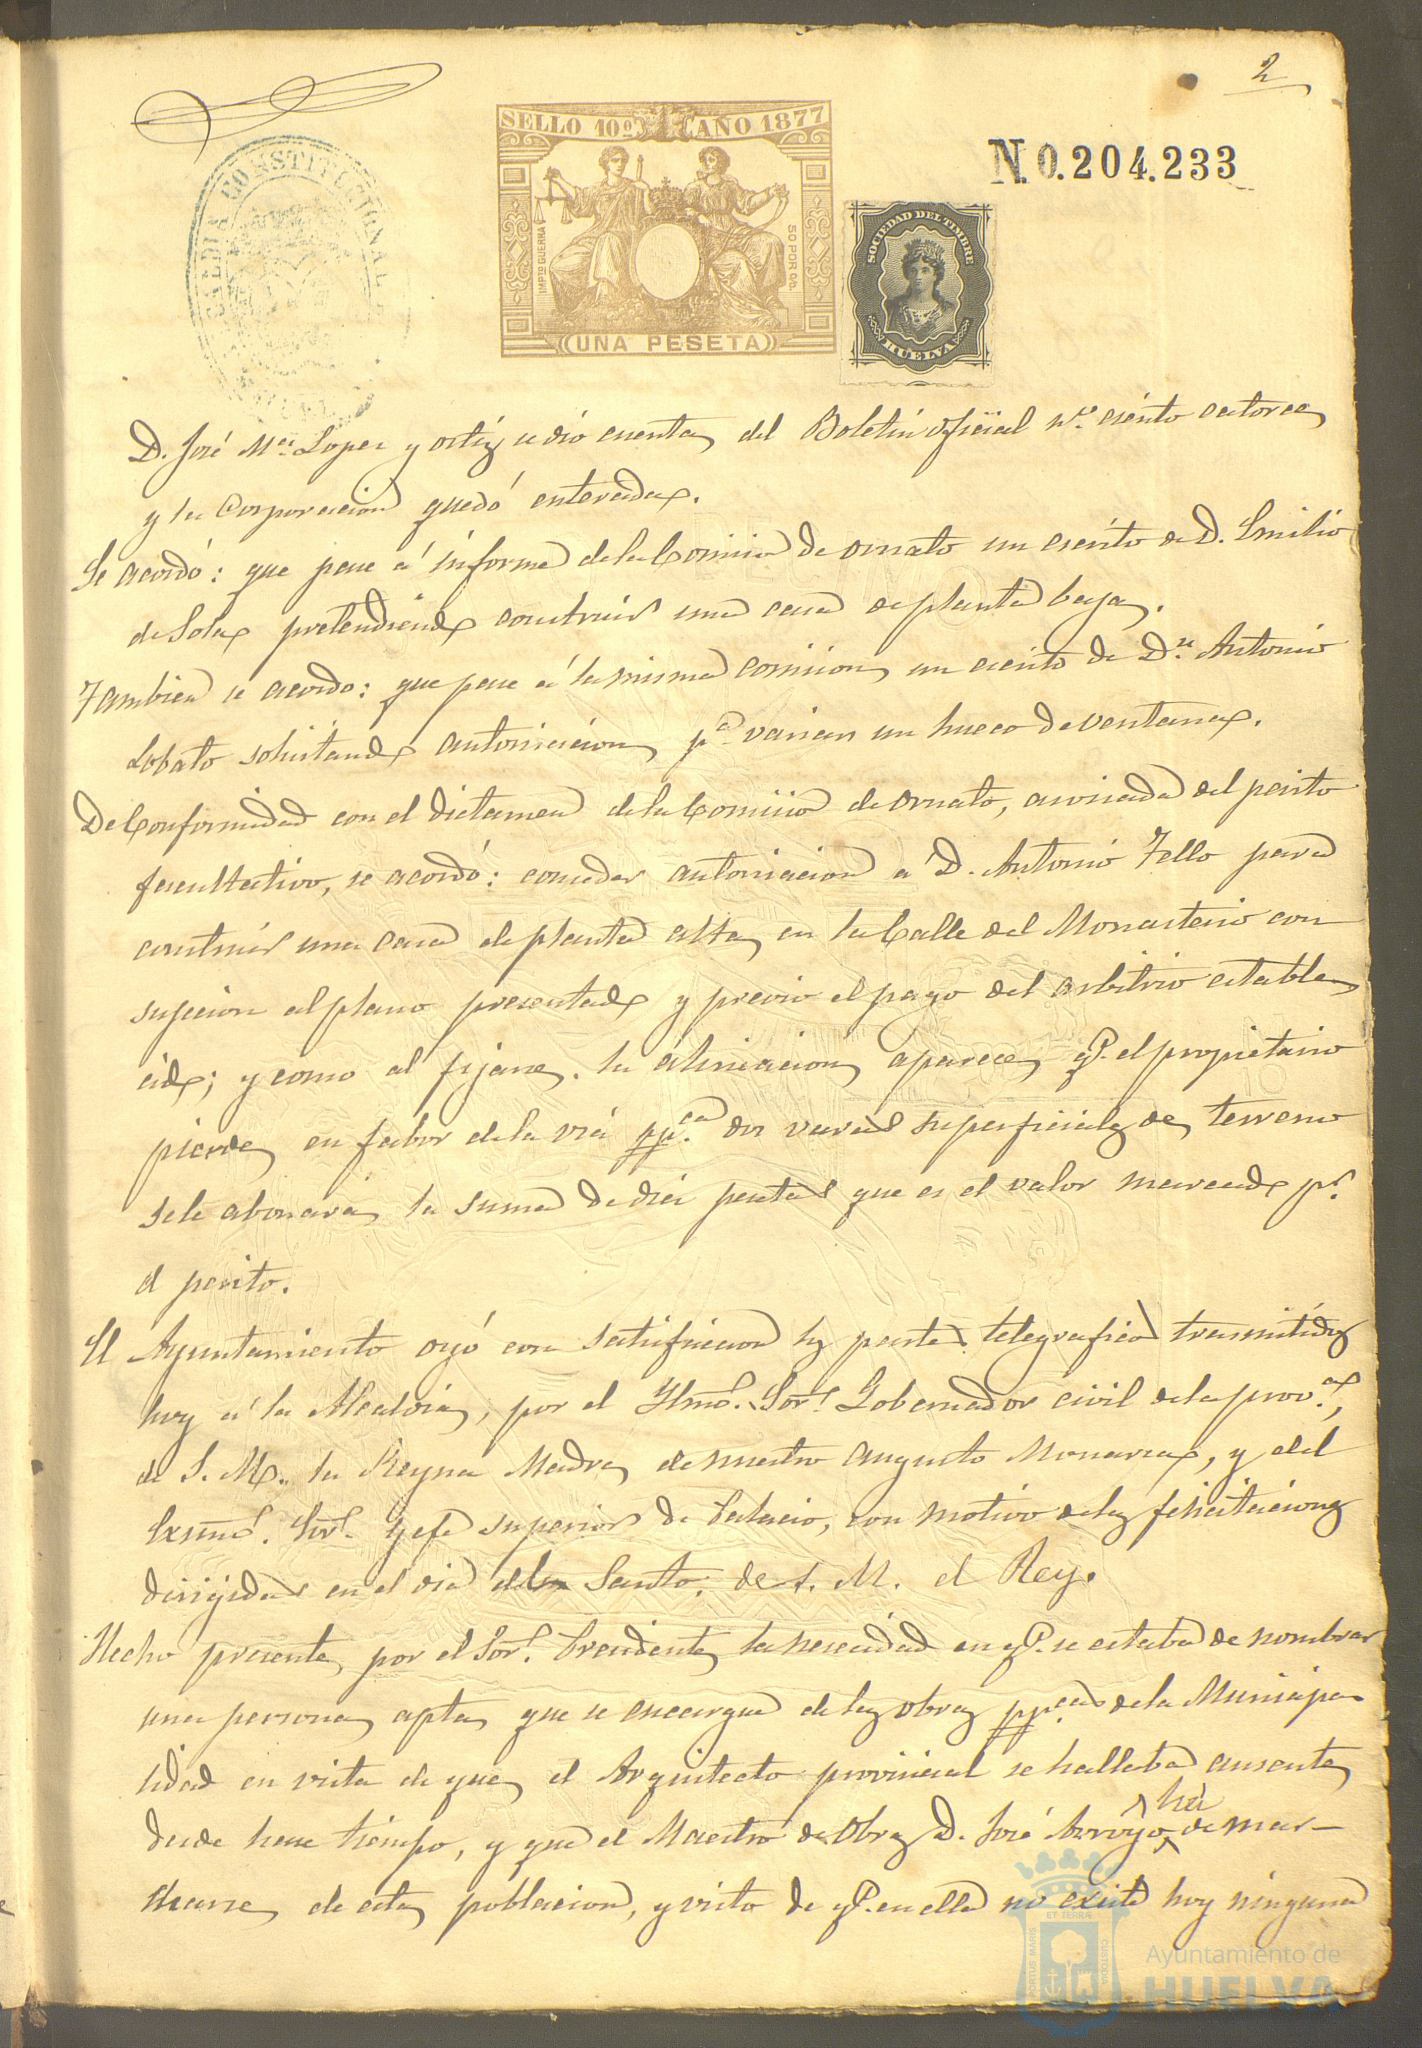 2
SELLO 10º AÑO 1877
N.0.204.233
ALCALDIA CONSTITUCIONAL
SOCIEDAD DEL TIMBRE
IMPTO GUERRA
50 POR 00
HUELVA
UNA PESETA
D. José Mª Lopez y ortiz se dió cuenta del Boletin oficial nº ciento catorce
y la Corporacion quedó enterada.
Se acordó: que pase á informe de la Comision de ornato un escrito de D. Emilio
de Sola pretendiendo construir una casa de planta baja.
Tambien se acordo: que pase á la misma comision un escrito de Dn. Antonio
Lobato solicitando autorizacion pª variar un hueco de ventana.
De Conformidad con el dictamen de la Comision de ornato, asociada del perito
facultativo, se acordó: conceder autorizacion á D. Antonio Tello para
construir una casa de planta alta en la Calle del Monasterio con
sujecion al plano presentado y previo el pago del arbitrio estable
cido; y como al fijarse la alineacion aparece qe. el propietario
pierde en fabor de la via ppca. dos varas superficiales de terreno
se le abonará la suma de diez pesetas que es el valor marcado pr.
el perito.
El Ayuntamiento oyó con satisfaccion los partes telegraficos trasmitidos
hoy á la Alcaldia, por el Ylmo. Sor. Gobernador civil de la prova.,
de S. M. la Reyna Madre de nuestro augusto Monarca, y del
Exmo. Sor. Gefe superior de Palacio, con motivo de las felicitaciones
dirigidas en el dia del Santo de S. M. el Rey.
Hecho presente por el Sor. Presidente la necesidad en qe. se estaba de nombrar
una persona apta que se encargue de las obras ppcas de la Municipa
lidad en vista de que el Arquitecto provincial se hallaba ausente
desde hace tiempo, y que el Maestro de Obras D. José Arroyo ha de mar-
charse de esta poblacion, y visto de qe. en ella no existe hoy ninguna
PORTUS MARIS ET TERRAE CUSTODIA
Ayuntamiento de
HUELVA